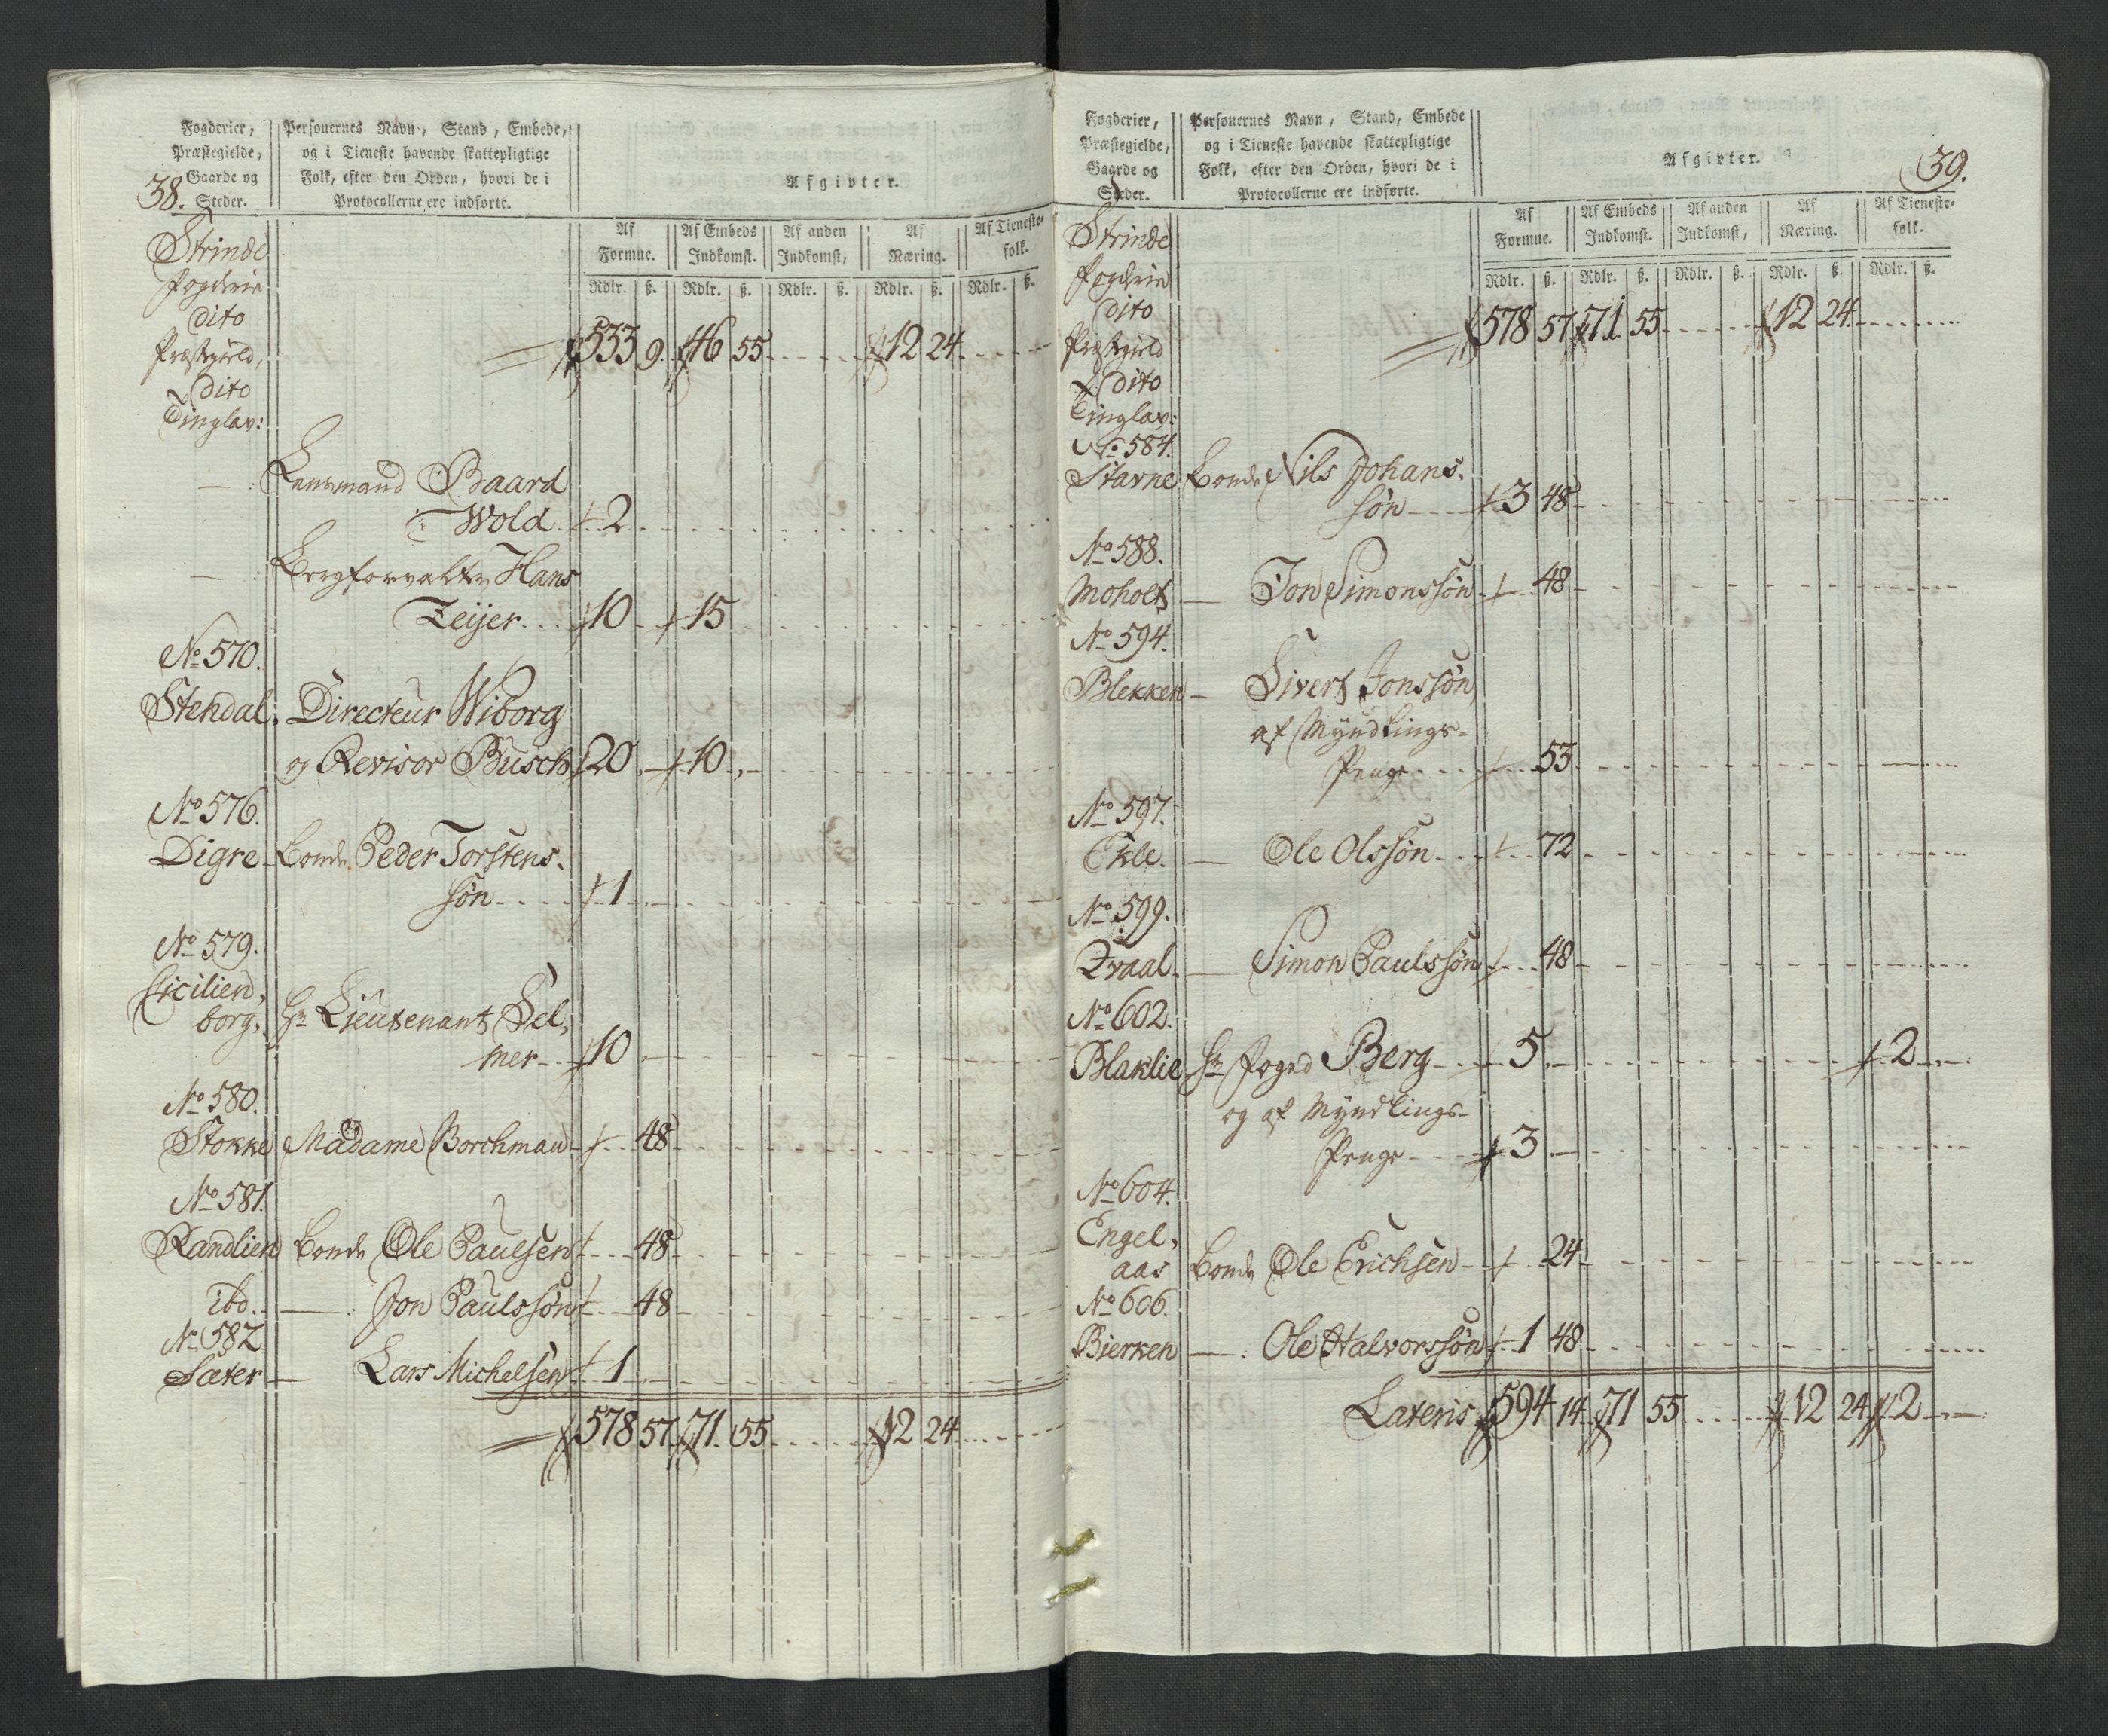 38.
Fogderier,
Præstegielde,
Gaarde og
Steder.
Personernes Navn, Stand, Embede,
og i Tieneste havende skattepligtige
Folk, efter den Orden, hvori de i
Protocollerne ere indførte.
Afgivter.
Af Formue. Af Embeds Indkomst. Af anden Indkomst, Af Næring. Af Tieneste-folk.
Rdlr. ß. Rdlr. ß. Rdlr. ß. Rdlr. ß. Rdlr. ß.
Strinde
Fogderie
dito
Præstegield,
533 9. 46 55 12 24
dito
Tinglav:
— : Lensmand Baard
Wold 2
— : Bergforvalter Hans
Zeijer 10 15
No 570.
Stendal, Directeur Wiborg
og Revisor Busch 20 10
No 576.
Digre Bonde Peder Torstens-
søn 1
No 579.
Cicilien,
borg. Hr Lieutenant Sel,
mer 10
No 580.
Stokke Madame Borchman 48
No 581.
Randlien Bonde Ole Paulsen 48
ibd. — : Jon Paulssøn 48
No 582
Sæter — Lars Michelsen 1
578 57 71. 55 12 24
39.
Fogderier,
Præstegielde,
Gaarde og
Steder.
Personernes Navn, Stand, Embede
og i Tieneste havende skattepligtige
Folk, efter den Orden, hvori de i
Protocollerne ere indførte.
Afgivter.
Af Formue. Af Embeds Indkomst. Af anden Indkomst, Af Næring. Af Tieneste-folk.
Rdlr. ß. Rdlr. ß. Rdlr. ß. Rdlr. ß. Rdlr. ß.
Strinde
Fogderie
dito
Præstegield
578 57 71 55 12 24
dito
Tinglav:
No 584.
Stavne Bonde Nils Johans-
søn 3 48
No 588.
Moholt — Jon Simonssøn 48
No 594.
Blekken — Sivert Jonssøn
af Myndlings-
Penge 53
No 597.
Ekle. — Ole Olssøn 72
No 599.
Tvaal. — Simon Paulssøn 48
No 602.
Blaklie Hr Foged Berg 5 2
og af Myndlings-
Penge 3
No 604.
Engel,
aas Bonde Ole Erichsen 24
No 606.
Bierken — : Ole Halvorssøn 1 48
Lateris 594 14 71 55 12 24 2